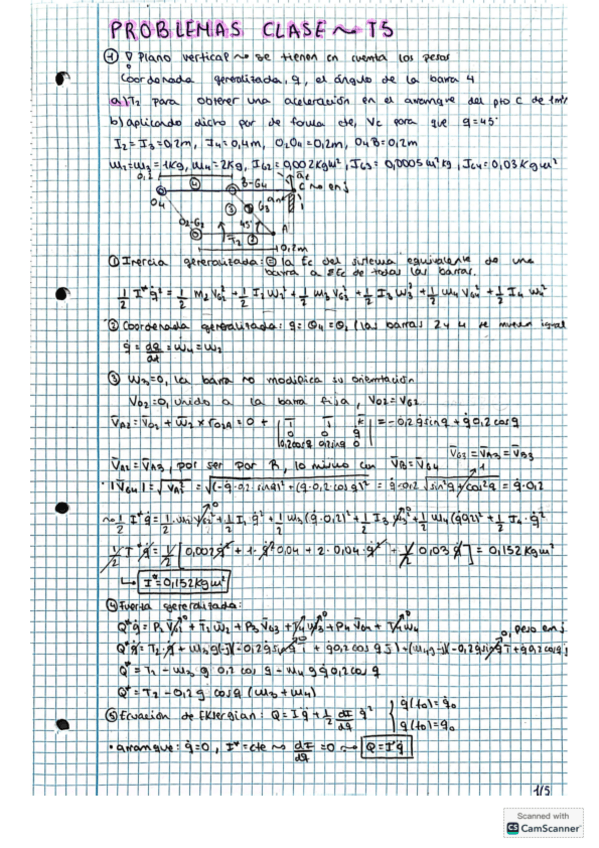 PROBLEMAS CLASE ~ T5
① ! Plano vertical ~ se tienen en cuenta los pesos
Coordenada generalizada, q, el ángulo de la barra 4
a) T₂ para obtener una aceleración en el arranque del pto C de 1m/s²
b) aplicando dicho par de forma cte, Vc para que q=45°
I₂ = I₃ = 0,2m, I₄ = 0,4m, O₂O₄ = 0,2m, O₄B = 0,2m
m₂=m₃=1kg, m₄=2kg, I_G2 = 0,002kgm², I_G3 = 0,0005 m²kg, I_G4 = 0,03 kgm²
④ B-G₄ C ~ en j
O₄ ③ G₃
O₂-G₂ 45° A
T₂ ②
0,2m
① Inercia generalizada: la Ec del sistema equivalente de una
barra a ΣEc de todas las barras.
½ I* q̇² = ½ m₂ V_G2² + ½ I₂ ω₂² + ½ m₃ V_G3² + ½ I₃ ω₃² + ½ m₄ V_G4² + ½ I₄ ω₄²
② Coordenada generalizada: q = θ₄ = θ₂ (las barras 2 y 4 se mueven igual
q̇ = dq/dt = ω₄ = ω₂
③ ω₃=0, la barra no modifica su orientación
V_O2 = 0, unido a la barra fija, V_O2 = V_G2
V̄_A2 = V̄_O2 + ω̄₂ × r_O2A = 0 + | i j k̄ | = -0,2 q̇ sinq + q̇ 0,2 cosq
0 0 q̇
0,2cosq 0,2sinq 0
V̄_G3 = V̄_A3 = V̄_B3
V̄_A2 = V̄_A3, por ser por R, lo mismo con V̄_B = V̄_G4
|V̄_G4| = √V_A3² = √(-q̇·0,2 sinq)² + (q̇·0,2 cosq)² = q̇·0,2 √sin²q + cos²q = q̇·0,2
~ ½ I* q̇ = ½ m₂ V_G2² + ½ I₂ q̇² + ½ m₃ (q̇·0,2)² + ½ I₃ ω₃² + ½ m₄ (q̇0,2)² + ½ I₄·q̇²
½ I* q̇ = ½ [0,002q̇² + 1·q̇²0,04 + 2·0,04·q̇² + 0,03 q̇] = 0,152kgm²
↳ I* = 0,152kgm²
④ Fuerza generalizada:
Q*q̇ = P₂ V_G2 + T₂ ω₂ + P₃ V_G3 + T₃ ω₃ + P₄ V_G4 + T₄ω₄
0, peso en j
Q*q̇ = T₂·q̇ + m₃g(-j)(-0,2q̇sinq i + q̇0,2 cosq j) + (m₄g-j)(-0,2q̇sinq i + q̇0,2cosq j
Q* = T₂ - m₃ g 0,2 cosq - m₄ g 0,2cosq
Q* = T₂ - 0,2g cosq (m₃+m₄)
⑤ Ecuación de EKsergian: Q = I q̈ + ½ dI/dq q̇² { q(t₀) = q₀
q̇(t₀) = q̇₀
• arranque: q̇=0, I*=cte ~ dI/dq = 0 ~ Q = I*q̈
1/5
Scanned with
CS CamScanner